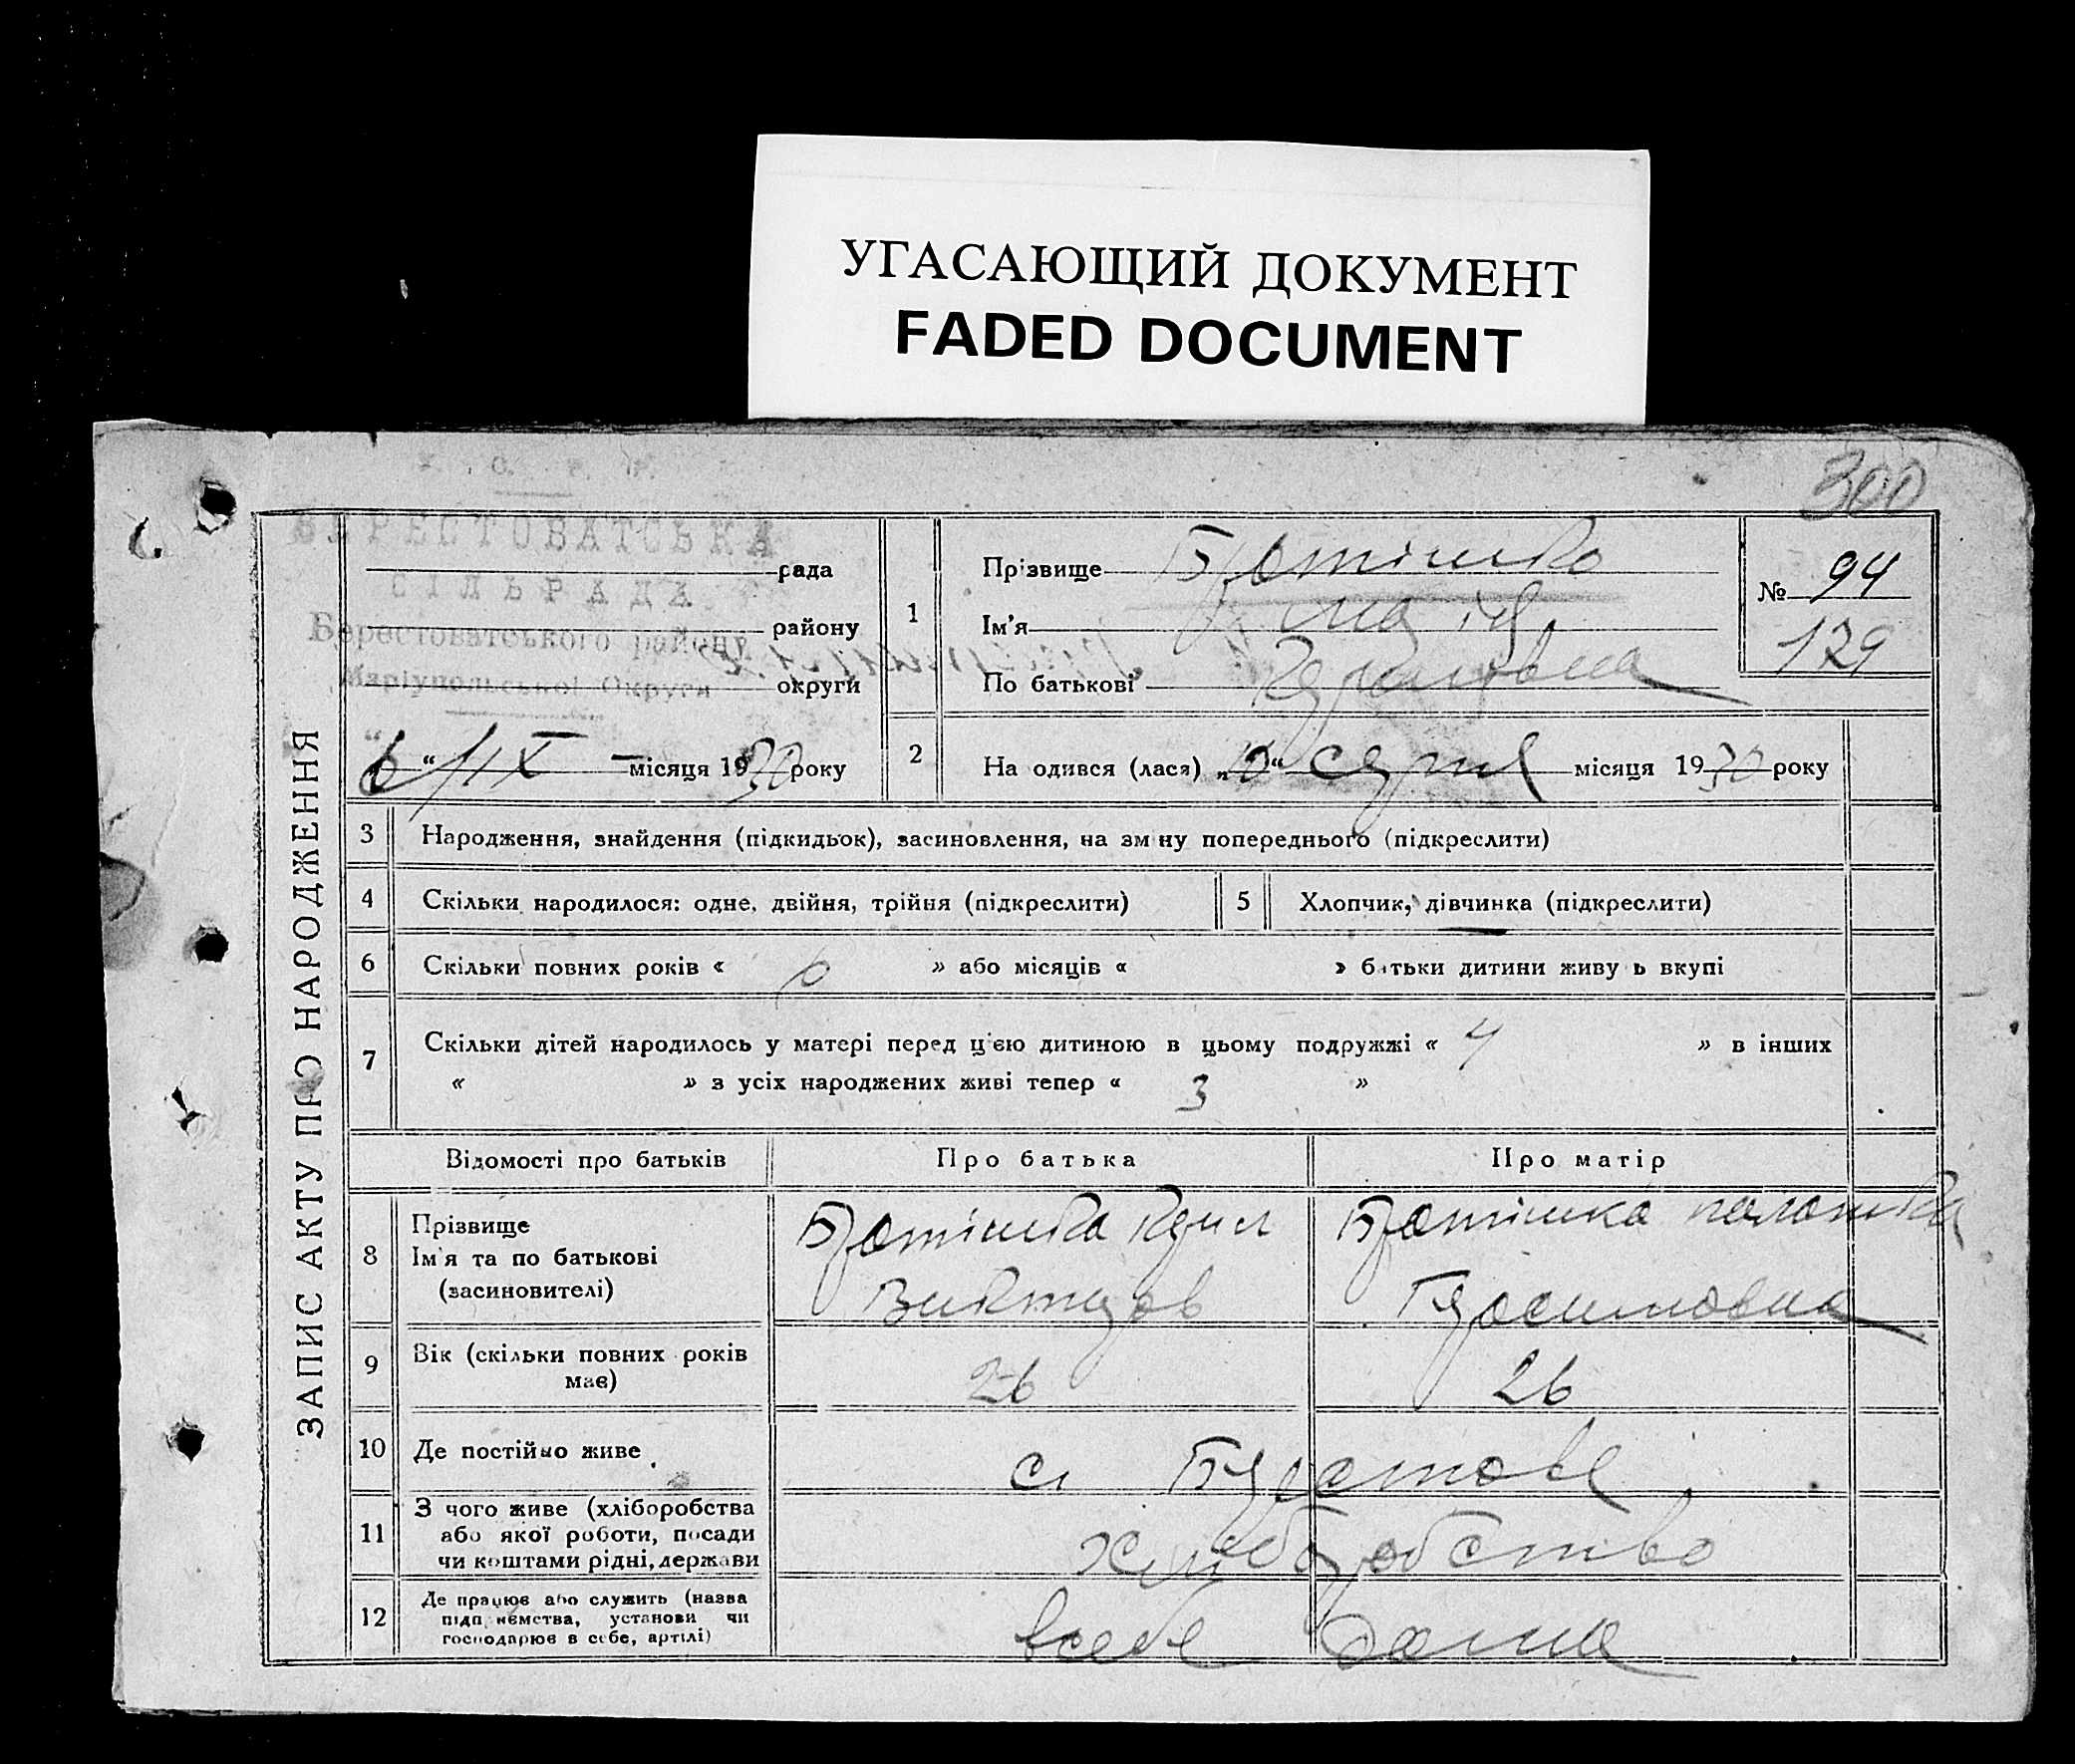 УГАСАЮЩИЙ ДОКУМЕНТ
FADED DOCUMENT
300
БЕРЕСТОВАТСЬКА
рада
СІЛЬРАДА
Берестоватського району
району
Маріупольської Округи
округи
6 "ІХ місяця 1930 року
1
Прізвище
Ім'я
По батькові
№ 94
129
2
На одився (лася) „10“ серпня місяця 1930 року
ЗАПИС АКТУ ПРО НАРОДЖЕННЯ
3 Народження, знайдення (підкидьок), засиновлення, на зм ну попереднього (підкреслити)
4 Скільки народилося: одне, двійня, трійня (підкреслити)
5 Хлопчик, дівчинка (підкреслити)
6 Скільки повних років « 6 » або місяців « » батьки дитини живу ь вкупі
7 Скільки дітей народилось у матері перед цією дитиною в цьому подружжі « 4 » в інших
« » з усіх народжених живі тепер « 3 »
Відомості про батьків Про батька Про матір
8 Прізвище
Ім'я та по батькові
(засиновителі)
Гарасимовна
9 Вік (скільки повних років має) 26 26
10 Де постійно живе с.
11 З чого живе (хліборобства
або якої роботи, посади
чи коштами рідні, держави
хліборобство
12 Де працює або служить (назва
підп иємства, установи чи
господарює в себе, артілі)
всебе дома